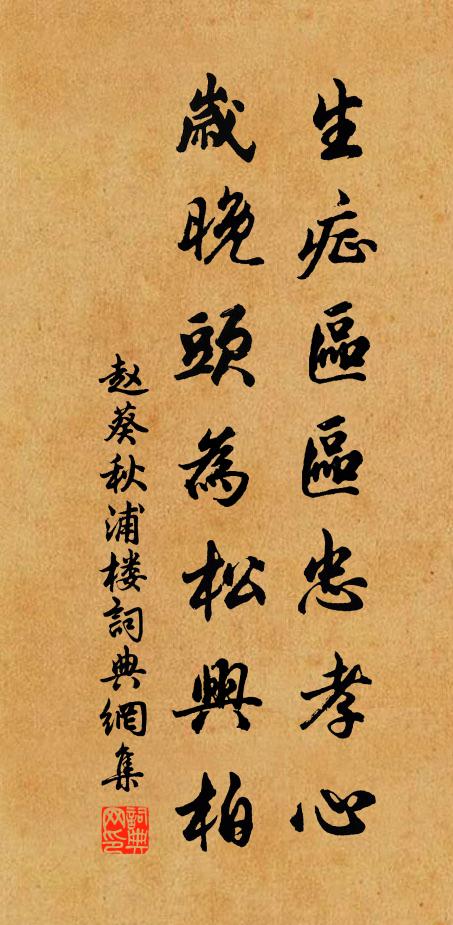 生症區區忠孝心
歲晚頭為松興柏
赵葵秋浦楼詞典網集
詞典网印